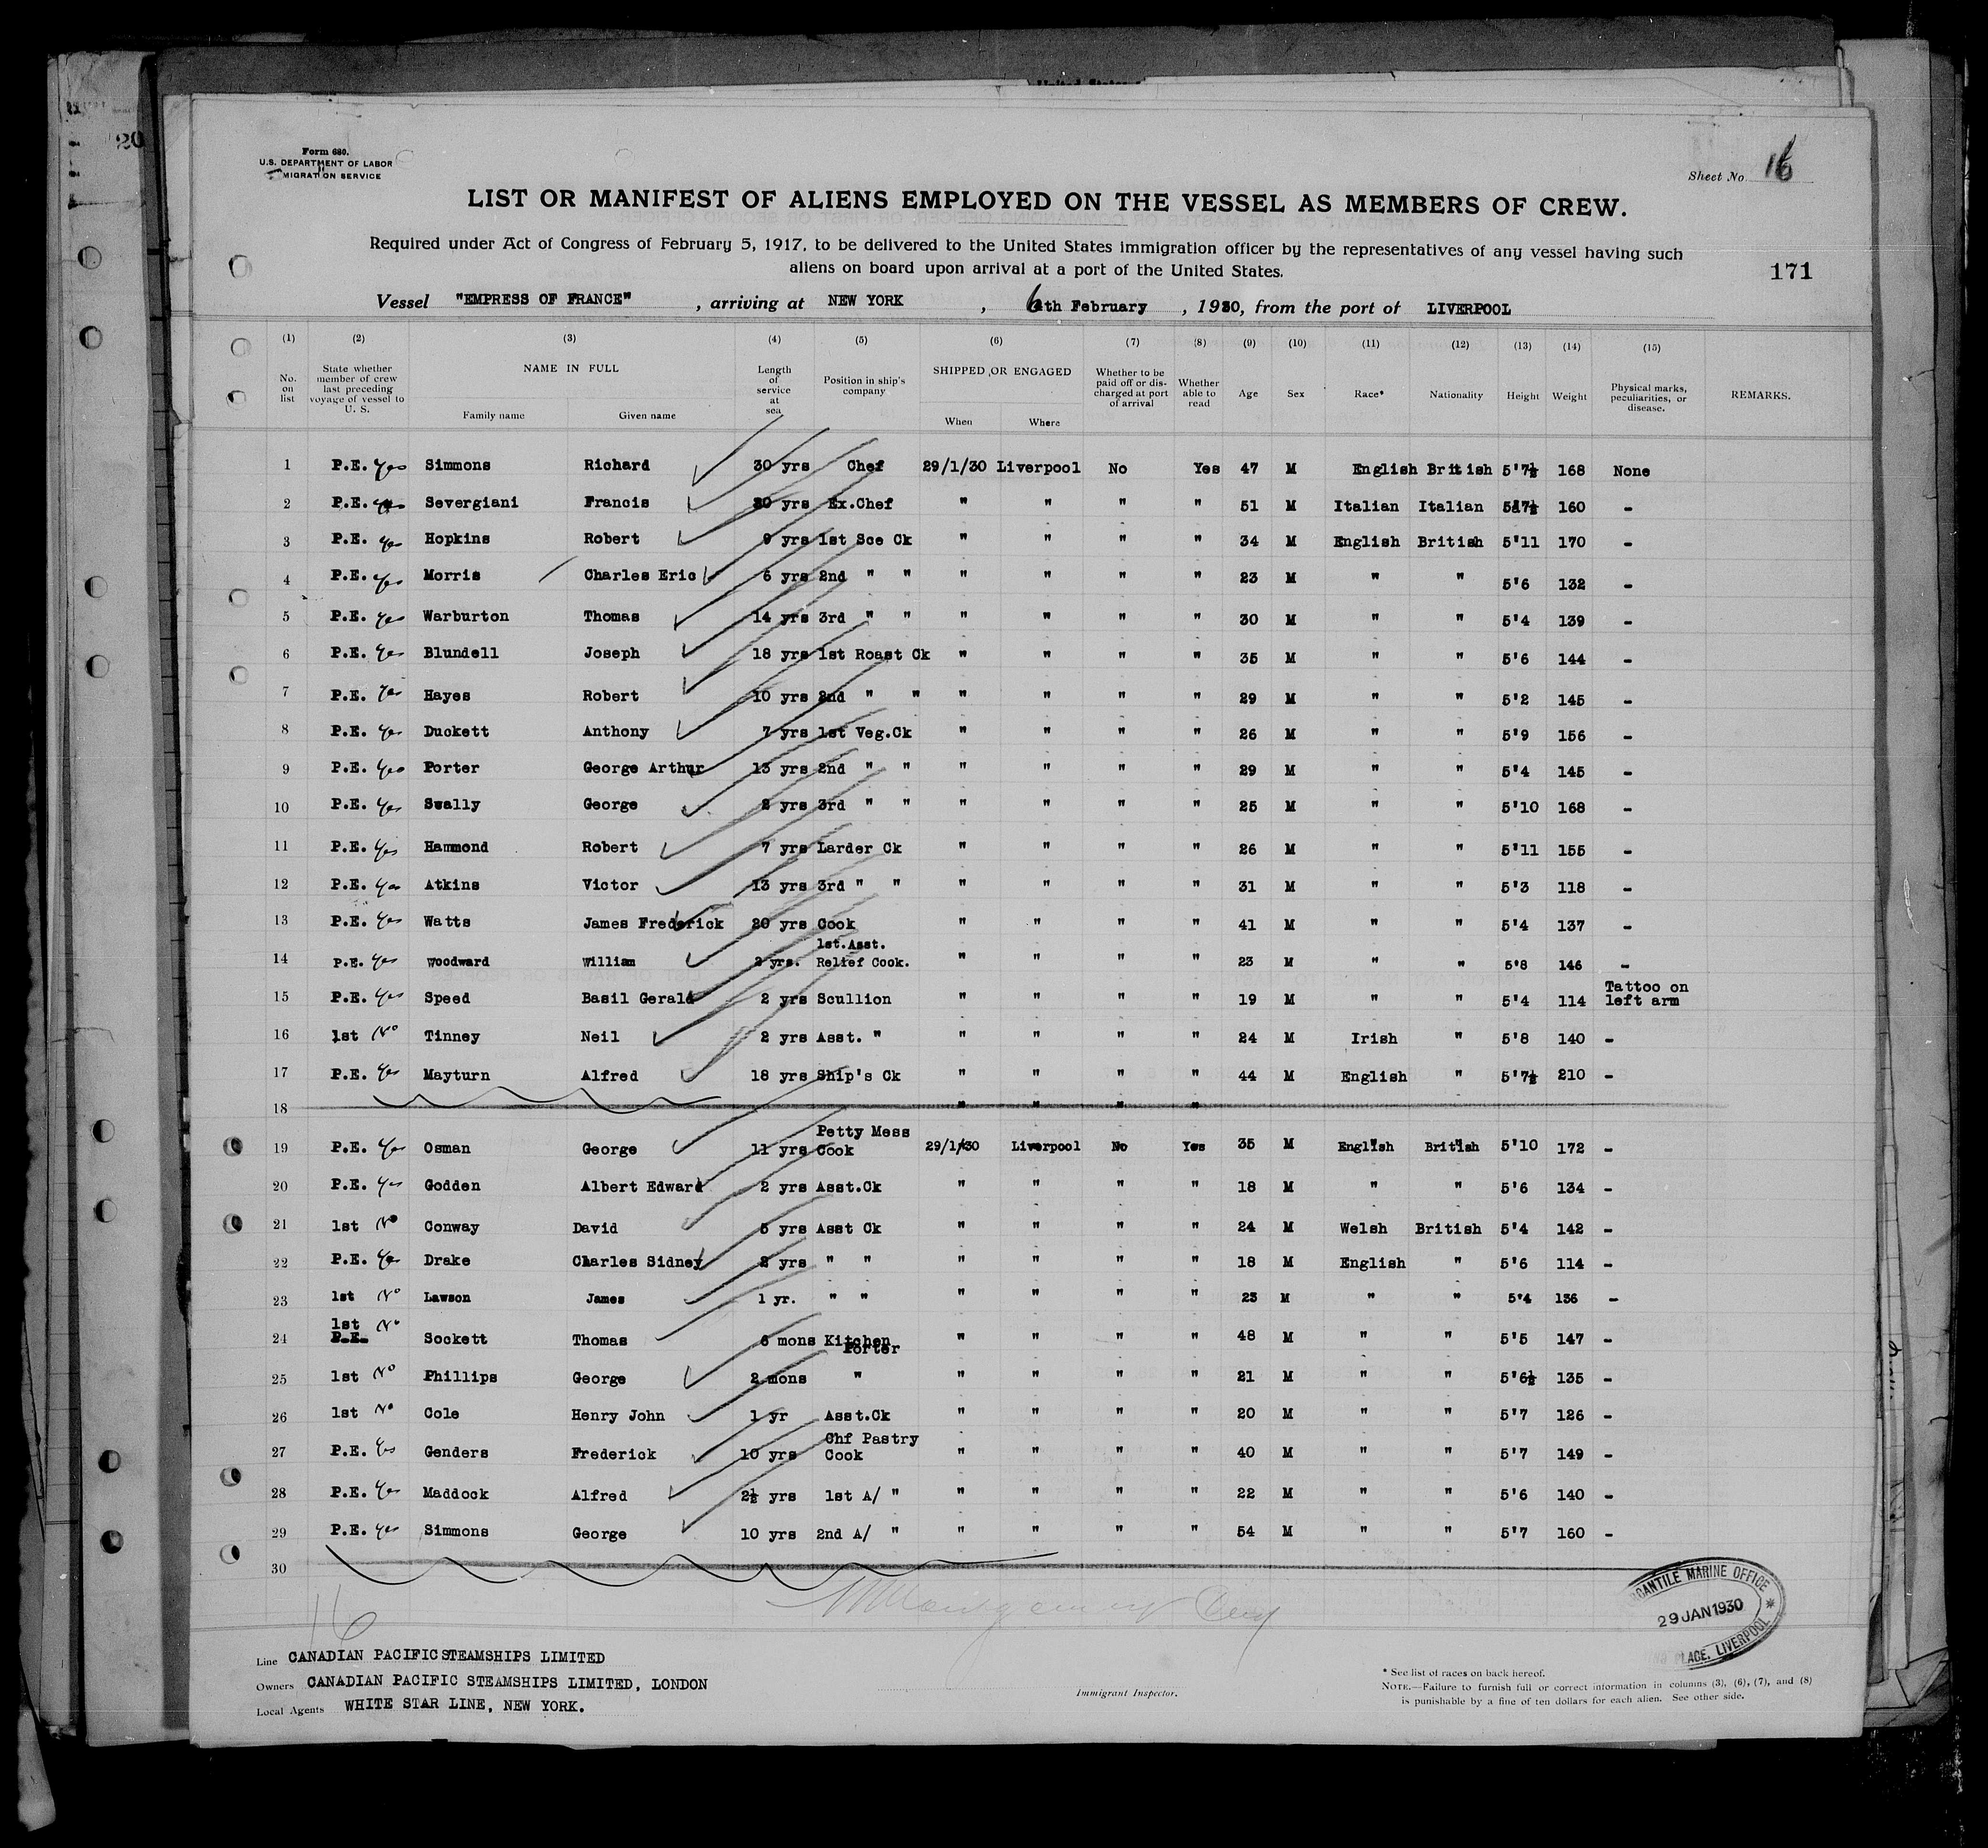 20
Form 680.
U.S. DEPARTMENT OF LABOR
MIGRATION SERVICE
Sheet No. 16
LIST OR MANIFEST OF ALIENS EMPLOYED ON THE VESSEL AS MEMBERS OF CREW.
Required under Act of Congress of February 5, 1917, to be delivered to the United States immigration officer by the representatives of any vessel having such
aliens on board upon arrival at a port of the United States.
171
Vessel "EMPRESS OF FRANCE", arriving at NEW YORK, 6th February, 1930, from the port of LIVERPOOL
(1) (2) (3) (4) (5) (6) (7) (8) (9) (10) (11) (12) (13) (14) (15)
No. on list State whether member of crew last preceding voyage of vessel to U. S. NAME IN FULL Family name Given name Length of service at sea Position in ship's company SHIPPED OR ENGAGED When Where Whether to be paid off or discharged at port of arrival Whether able to read Age Sex Race* Nationality Height Weight Physical marks, peculiarities, or disease. REMARKS.
1 P.E. Yes Simmons Richard 30 yrs Chef 29/1/30 Liverpool No Yes 47 M English British 5'7½ 168 None
2 P.E. Yes Severgiani Francis 30 yrs Ex.Chef " " " " 51 M Italian Italian 5'7½ 160 -
3 P.E. Yes Hopkins Robert 9 yrs 1st Sce Ck " " " " 34 M English British 5'11 170 -
4 P.E. Yes Morris Charles Eric 6 yrs 2nd " " " " " " 23 M " " 5'6 132 -
5 P.E. Yes Warburton Thomas 14 yrs 3rd " " " " " " 30 M " " 5'4 139 -
6 P.E. Yes Blundell Joseph 18 yrs 1st Roast Ck " " " " 35 M " " 5'6 144 -
7 P.E. Yes Hayes Robert 10 yrs 2nd " " " " " " 29 M " " 5'2 145 -
8 P.E. Yes Duckett Anthony 7 yrs 1st Veg.Ck " " " " 26 M " " 5'9 156 -
9 P.E. Yes Porter George Arthur 13 yrs 2nd " " " " " " 29 M " " 5'4 145 -
10 P.E. Yes Swally George 2 yrs 3rd " " " " " " 25 M " " 5'10 168 -
11 P.E. Yes Hammond Robert 7 yrs Larder Ck " " " " 26 M " " 5'11 155 -
12 P.E. Yes Atkins Victor 13 yrs 3rd " " " " " " 31 M " " 5'3 118 -
13 P.E. Yes Watts James Frederick 20 yrs Cook " " " " 41 M " " 5'4 137 -
14 P.E. Yes Woodward William 2 yrs. 1st.Asst. Relief Cook. " " " " 23 M " " 5'8 146 -
15 P.E. Yes Speed Basil Gerald 2 yrs Scullion " " " " 19 M " " 5'4 114 Tattoo on left arm
16 1st No Tinney Neil 2 yrs Asst. " " " " " 24 M Irish " 5'8 140 -
17 P.E. Yes Mayturn Alfred 18 yrs Ship's Ck " " " " 44 M English " 5'7½ 210 -
18 " " " "
19 P.E. Yes Osman George 11 yrs Petty Mess Cook 29/1/30 Liverpool No Yes 35 M English British 5'10 172 -
20 P.E. Yes Godden Albert Edward 2 yrs Asst.Ck " " " " 18 M " " 5'6 134 -
21 1st No Conway David 5 yrs Asst Ck " " " " 24 M Welsh British 5'4 142 -
22 P.E. Yes Drake Charles Sidney 2 yrs " " " " " " 18 M English " 5'6 114 -
23 1st No Lawson James 1 yr. " " " " " " 23 M " " 5'4 136 -
24 1st No P.E. Sockett Thomas 6 mons Kitchen Porter " " " " 48 M " " 5'5 147 -
25 1st No Phillips George 2 mons " " " " " 21 M " " 5'6½ 135 -
26 1st No Cole Henry John 1 yr Asst.Ck " " " " 20 M " " 5'7 126 -
27 P.E. Yes Genders Frederick 10 yrs Chf Pastry Cook " " " " 40 M " " 5'7 149 -
28 P.E. Yes Maddock Alfred 2½ yrs 1st A/ " " " " " 22 M " " 5'6 140 -
29 P.E. Yes Simmons George 10 yrs 2nd A/ " " " " " 54 M " " 5'7 160 -
30
16
Line CANADIAN PACIFIC STEAMSHIPS LIMITED
Owners CANADIAN PACIFIC STEAMSHIPS LIMITED, LONDON
Local Agents WHITE STAR LINE, NEW YORK.
Immigrant Inspector.
* See list of races on back hereof.
NOTE.—Failure to furnish full or correct information in columns (3), (6), (7), and (8)
is punishable by a fine of ten dollars for each alien. See other side.
CANTILE MARINE OFFICE
29 JAN 1930
PLACE, LIVERPOOL